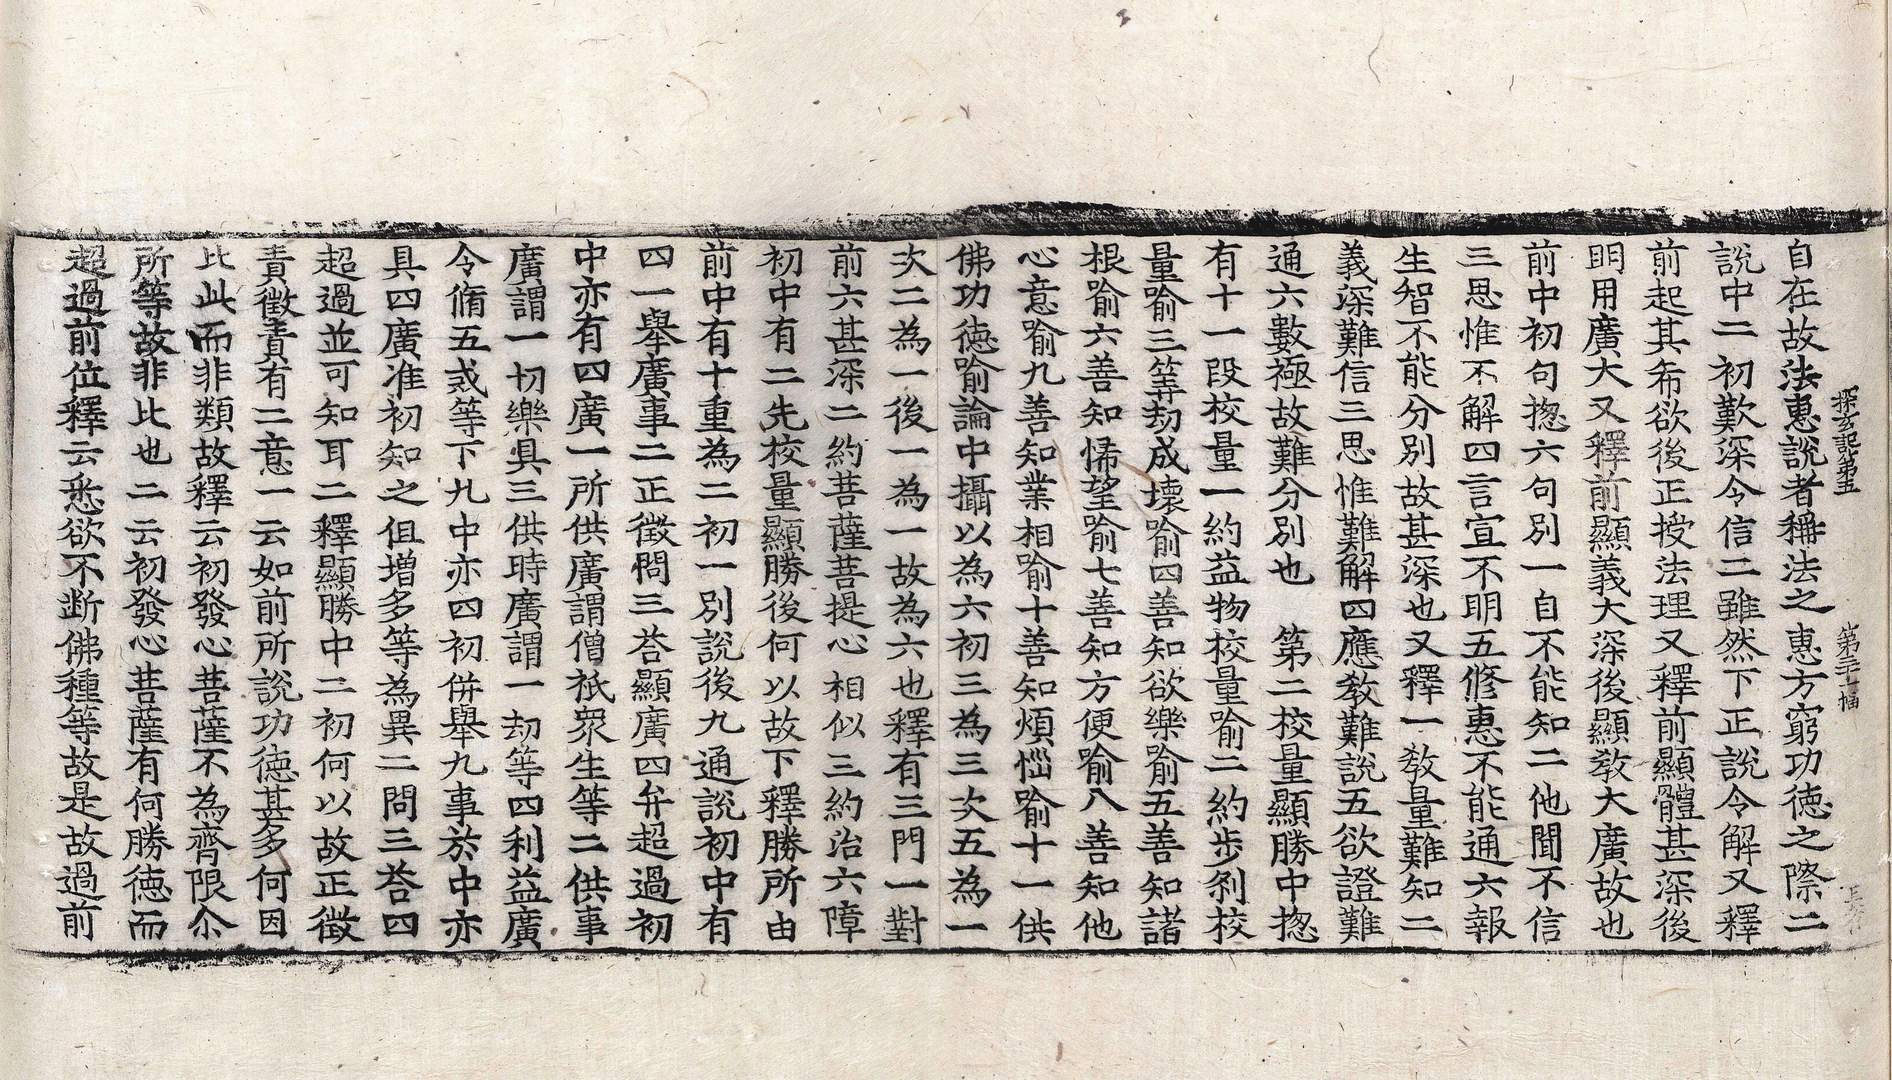 探玄記第五 第三十七幅
自在故法惠說者稱法之惠方窮功徳之際二
說中二初歎深令信二雖然下正說令解又釋
前起其希欲後正授法理又釋前顯體甚深後
明用廣大又釋前顯義大深後顯教大廣故也
前中初句揔六句別一自不能知二他聞不信
三思惟不解四言宣不明五修惠不能通六報
生智不能分別故甚深也又釋一教量難知二
義深難信三思惟難解四應教難說五欲證難
通六數極故難分別也 第二校量顯勝中揔
有十一段校量一約益物校量喻二約步剎校
量喻三筭劫成壞喻四善知欲樂喻五善知諸
根喻六善知悕望喻七善知方便喻八善知他
心意喻九善知業相喻十善知煩惱喻十一供
佛功徳喻論中攝以為六初三為三次五為一
次二為一後一為一故為六也釋有三門一對
前六甚深二約菩薩菩提心相似三約治六障
初中有二先校量顯勝後何以故下釋勝所由
前中有十重為二初一別說後九通說初中有
四一舉廣事二正徵問三荅顯廣四弁超過初
中亦有四廣一所供廣謂僧祇衆生等二供事
廣謂一切樂具三供時廣謂一劫等四利益廣
令脩五戒等下九中亦四初併舉九事於中亦
具四廣准初知之但增多等為異二問三荅四
超過並可知耳二釋顯勝中二初何以故正徵
責徵責有二意一云如前所說功徳甚多何因
比此而非類故釋云初發心菩薩不為齊限尒
所等故非比也二云初發心菩薩有何勝徳而
超過前位釋云悉欲不斷佛種等故是故過前